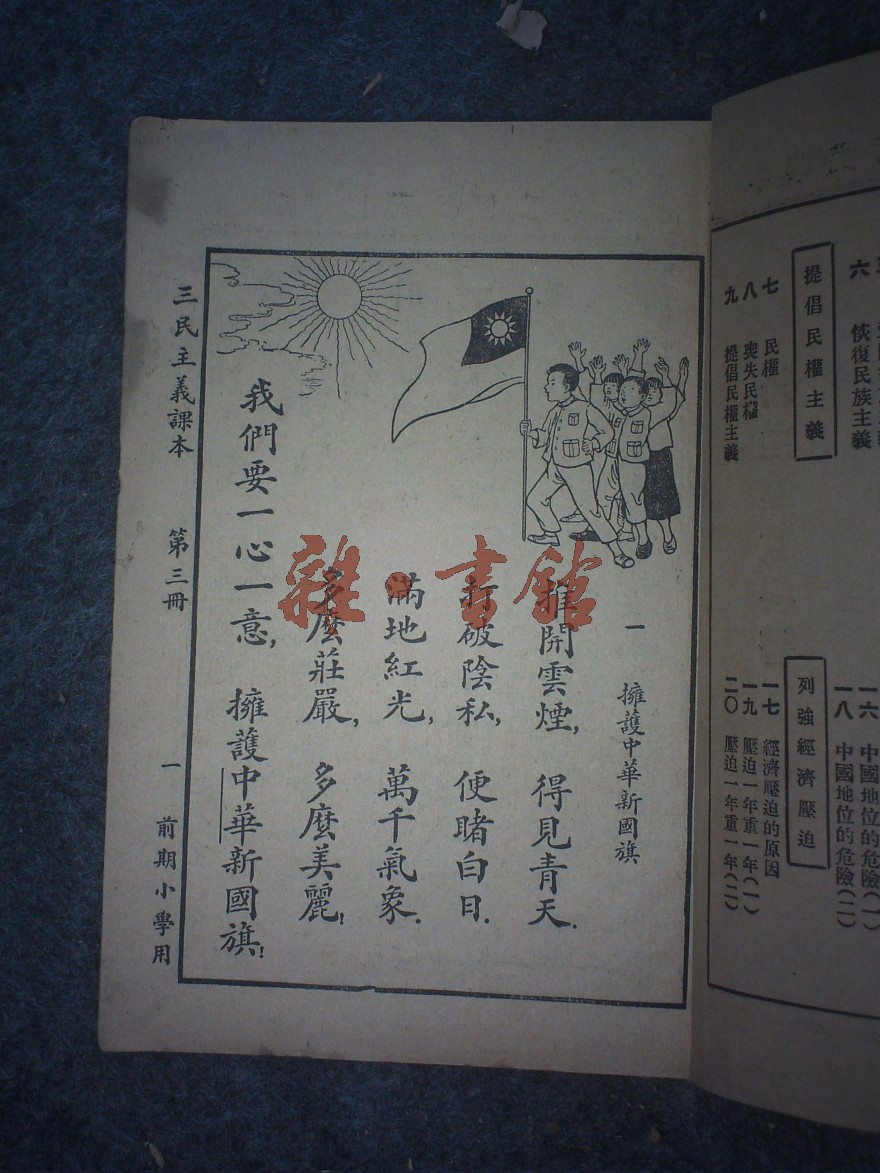 一 擁護中華新國旗
推開雲煙，得見青天．
打破陰私，便睹白日．
滿地紅光，萬千氣象．
多麼莊嚴，多麼美麗！
我們要一心一意，擁護中華新國旗！
三民主義課本 第三冊 一 前期小學用
雜·書館
六 恢復民族主義
提倡民權主義
七 民權
八 喪失民權
九 提倡民權主義
一六 中國地位的危險(一)
一八 中國地位的危險(二)
列強經濟壓迫
一七 經濟壓迫的原因
一九 壓迫一年重一年(一)
二〇 壓迫一年重一年(二)